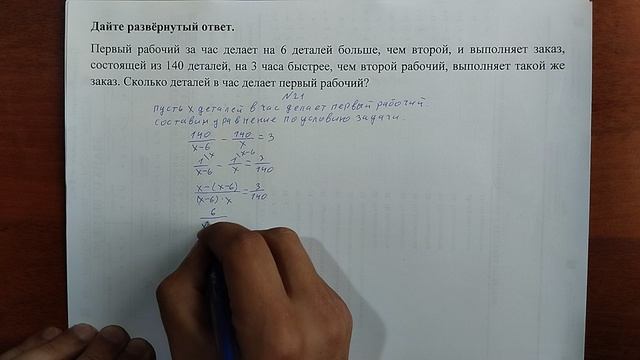 Дайте развёрнутый ответ.
Первый рабочий за час делает на 6 деталей больше, чем второй, и выполняет заказ,
состоящей из 140 деталей, на 3 часа быстрее, чем второй рабочий, выполняет такой же
заказ. Сколько деталей в час делает первый рабочий?
№21
пусть x деталей в час делает первый рабочий.
составим уравнение по условию задачи.
140/(x-6) - 140/x = 3
1\x/(x-6) - 1\x-6/x = 3/140
(x-(x-6))/((x-6)·x) = 3/140
6